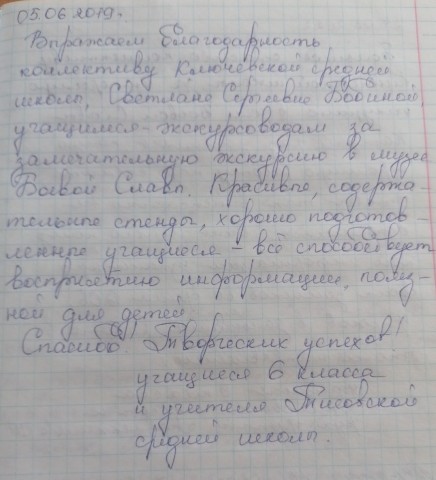 05.06.2019г.
Выражаем благодарность
коллективу Ключевской средней
школы, Светлане Сергеевне
учащимся-экскурсоводам за
замечательную экскурсию в музее
Боевой Славы. Красивые, содержа-
тельные стенды, хорошо подготов-
ленные учащиеся - всё способствует
восприятию информации, полез-
ной для детей.
Спасибо! Творческих успехов!
учащиеся 6 класса
и учителя Тисовской
средней школы.